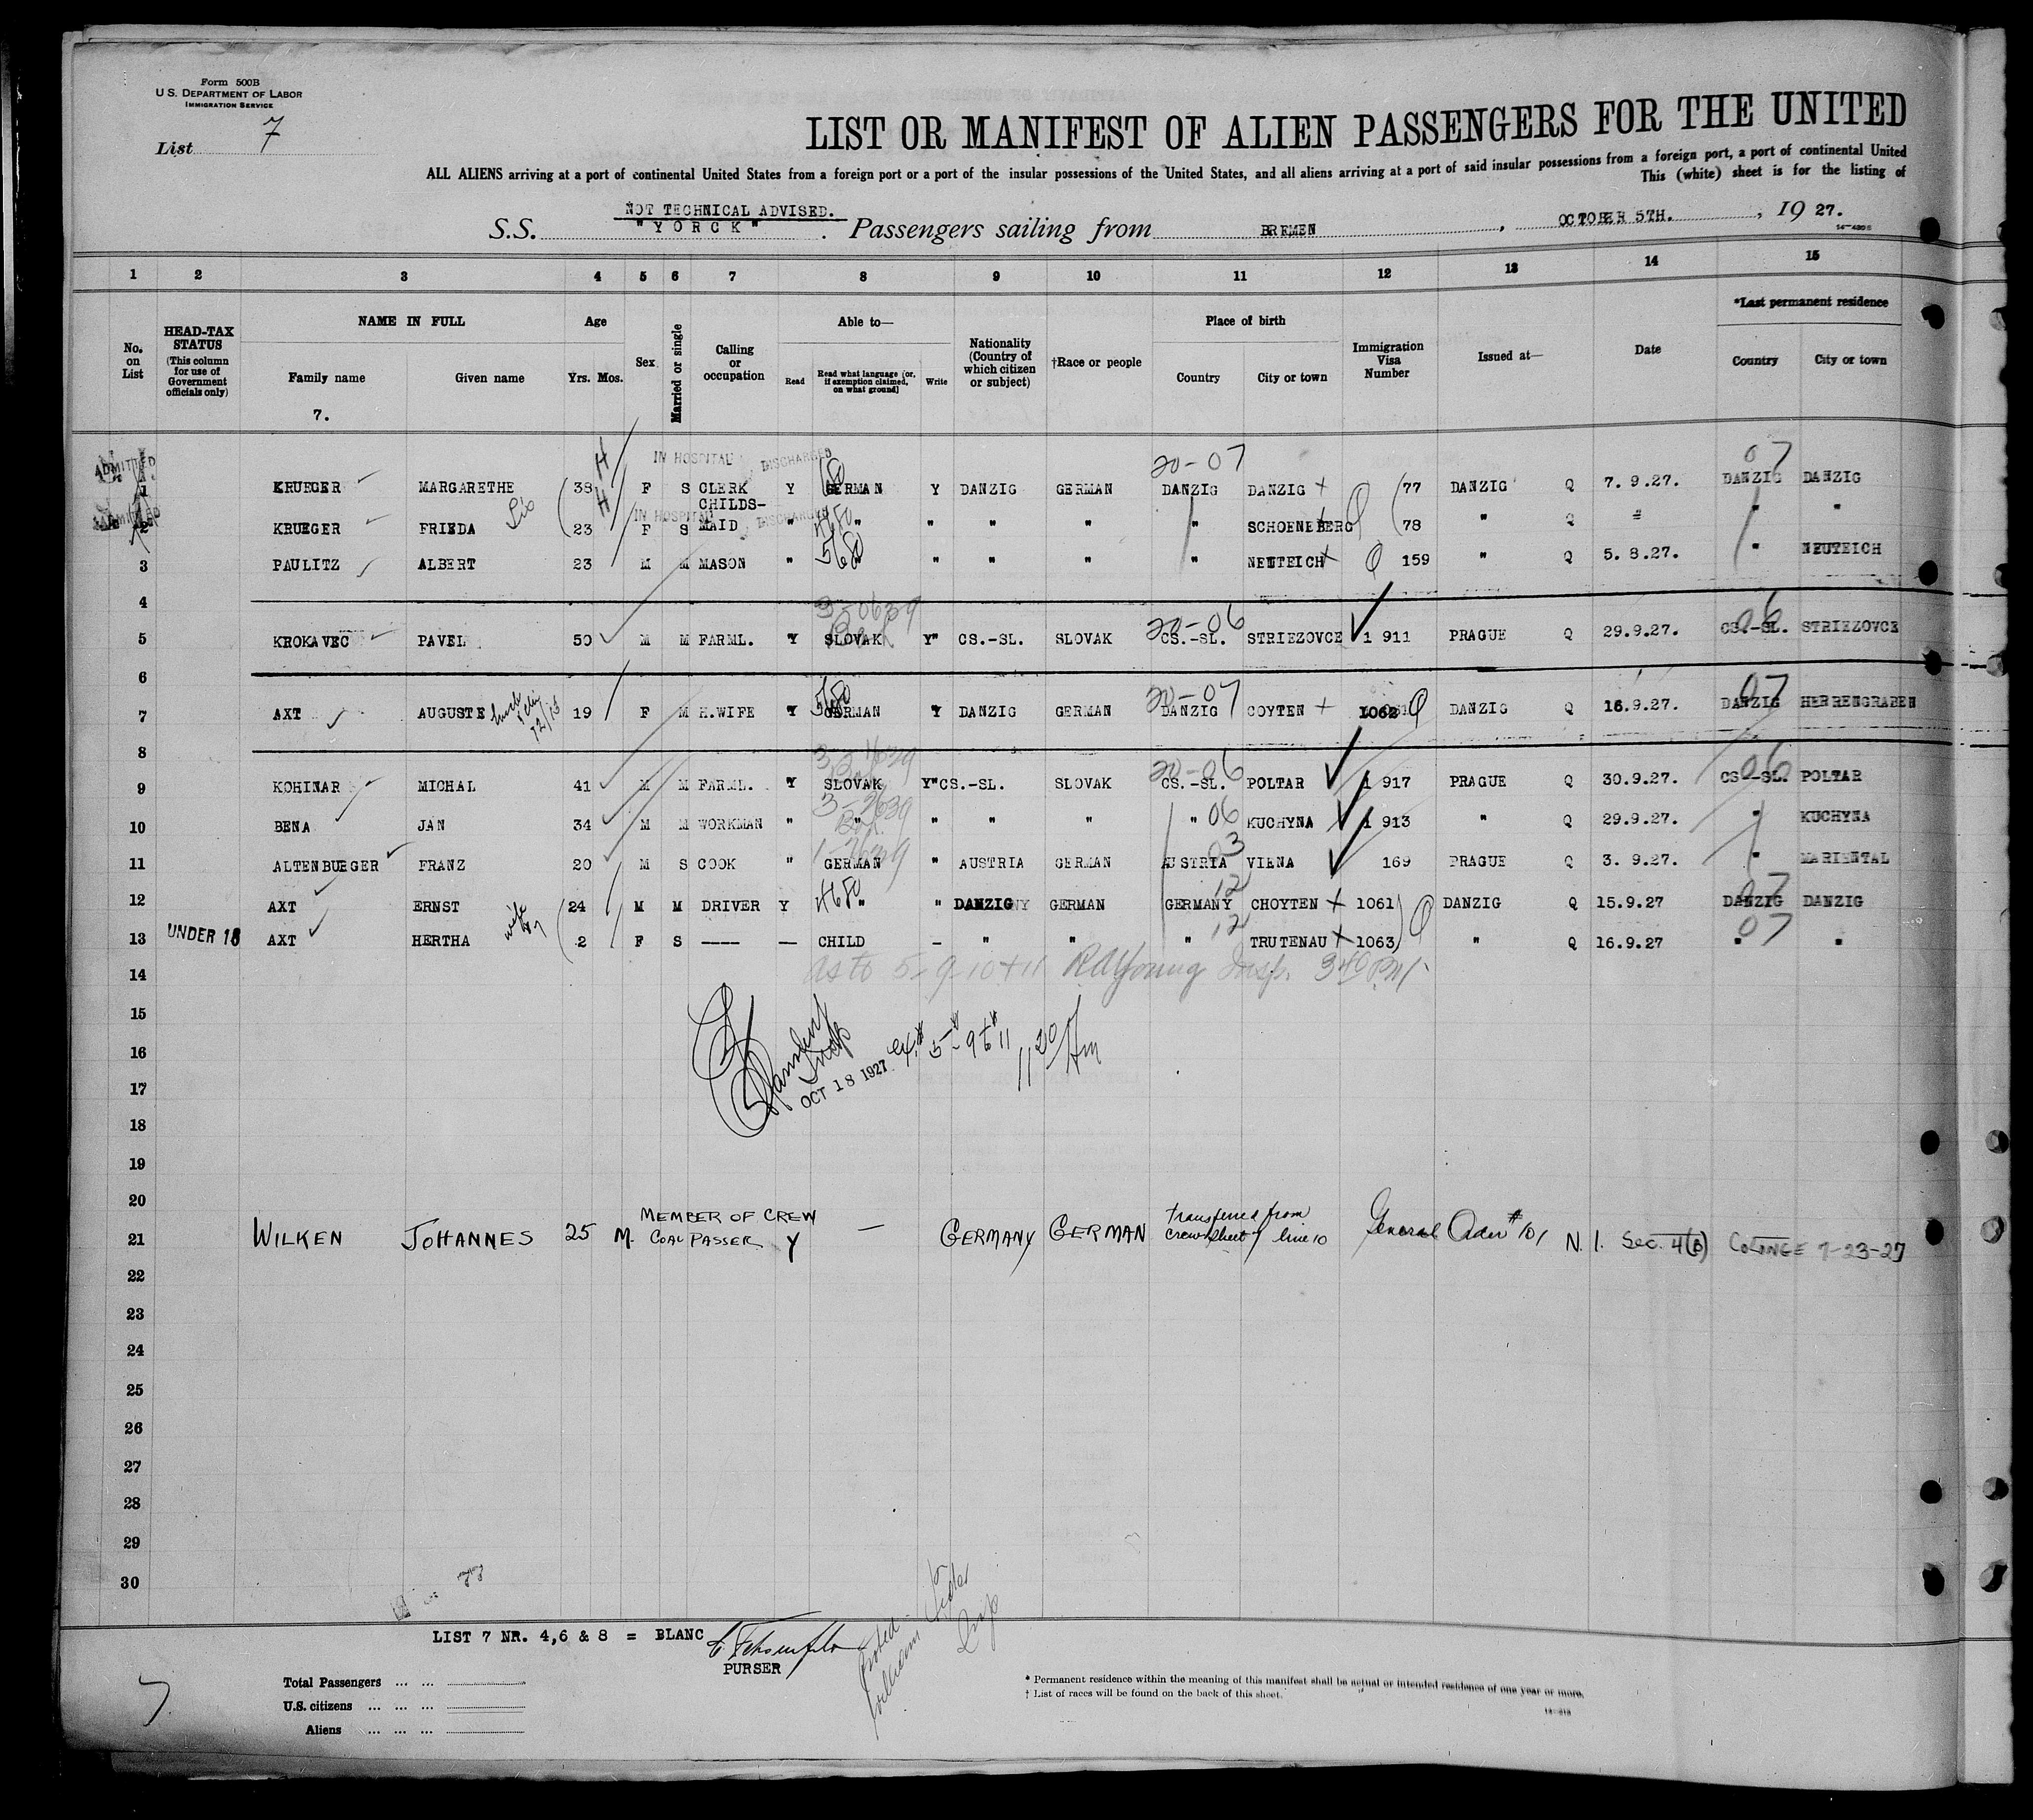 Form 500B
U.S. DEPARTMENT OF LABOR
IMMIGRATION SERVICE
List 7
LIST OR MANIFEST OF ALIEN PASSENGERS FOR THE UNITED
ALL ALIENS arriving at a port of continental United States from a foreign port or a port of the insular possessions of the United States, and all aliens arriving at a port of said insular possessions from a foreign port, a port of continental United
This (white) sheet is for the listing of
NOT TECHNICAL ADVISED.
S.S. "YORCK". Passengers sailing from BREMEN, OCTOBER 5TH., 19 27.
1 2 3 4 5 6 7 8 9 10 11 12 13 14 15
No. on List
HEAD-TAX STATUS (This column for use of Government officials only)
NAME IN FULL
Family name Given name
7.
Age
Yrs. Mos.
Sex
Married or single
Calling or occupation
Able to—
Read Read what language (or, if exemption claimed, on what ground) Write
Nationality (Country of which citizen or subject)
†Race or people
Place of birth
Country City or town
Immigration Visa Number
Issued at—
Date
*Last permanent residence
Country City or town
20-07 07
ADMITTED IN HOSPITAL DISCHARGED
1 KRUEGER MARGARETHE 38 F S CLERK Y GERMAN Y DANZIG GERMAN DANZIG DANZIG 77 DANZIG Q 7.9.27. DANZIG DANZIG
ADMITTED IN HOSPITAL DISCHARGED
2 KRUEGER FRIEDA Sis 23 F S CHILDS-MAID " " " " " " SCHOENEBERG 78 " Q " " "
3 PAULITZ ALBERT 23 M M MASON " " " " " " NEUTEICH 159 " Q 5.8.27. " NEUTEICH
4
20-06 06
5 KROKAVEC PAVEL 50 M M FARML. Y SLOVAK Y" CS.-SL. SLOVAK CS.-SL. STRIEZOVCE 1 911 PRAGUE Q 29.9.27. CS.-SL. STRIEZOVCE
6
20-07 07
7 AXT AUGUSTE 19 F M H.WIFE Y GERMAN Y DANZIG GERMAN DANZIG COYTEN 1062 DANZIG Q 16.9.27. DANZIG HERRENGRABEN
8
20-06 06
9 KOHINAR MICHAL 41 M M FARML. Y SLOVAK Y" CS.-SL. SLOVAK CS.-SL. POLTAR 1 917 PRAGUE Q 30.9.27. CS.-SL. POLTAR
10 BENA JAN 34 M M WORKMAN " " " " " " 06 KUCHYNA 1 913 " Q 29.9.27. " KUCHYNA
11 ALTENBURGER FRANZ 20 M S COOK " GERMAN " AUSTRIA GERMAN AUSTRIA 03 VIENA 169 PRAGUE Q 3. 9.27. " MARIENTAL
12 AXT ERNST 24 M M DRIVER Y 4680 " " DANZIG GERMAN GERMANY 12 CHOYTEN 1061 DANZIG Q 15.9.27 DANZIG 07 DANZIG
13 UNDER 16 AXT HERTHA 2 F S ---- — CHILD — " " " 12 TRUTENAU 1063 " Q 16.9.27 " 07 "
14 as to 5-9-10+11 R A Young Insp. 3 40 P.M.
15
16
Insp
OCT 18 1927 ex # 5- 9 to 11 11 20 Am
17
18
19
20
21 WILKEN JOHANNES 25 M. MEMBER OF CREW COAL PASSER Y — GERMANY GERMAN transferred from crew sheet 7 line 10 General Order #101 N.I. Sec. 4(b) COLONGE 7-23-27
22
23
24
25
26
27
28
29
30
LIST 7 NR. 4,6 & 8 = BLANC
PURSER
Total Passengers
U.S. citizens
Aliens
* Permanent residence within the meaning of this manifest shall be actual or intended residence of one year or more.
† List of races will be found on the back of this sheet.
7